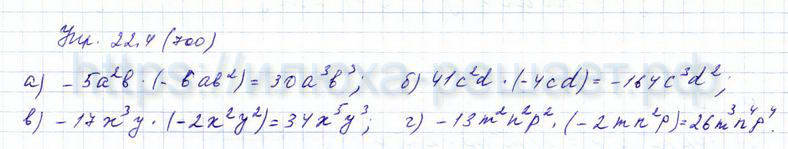 Упр. 22.4 (700)
а) -5a²b · (-6ab²) = 30a³b³; б) 41c²d · (-4cd) = -164c³d²;
в) -17x³y · (-2x²y²) = 34x⁵y³; г) -13m²n²p² · (-2mn²p) = 26m³n⁴p⁴.